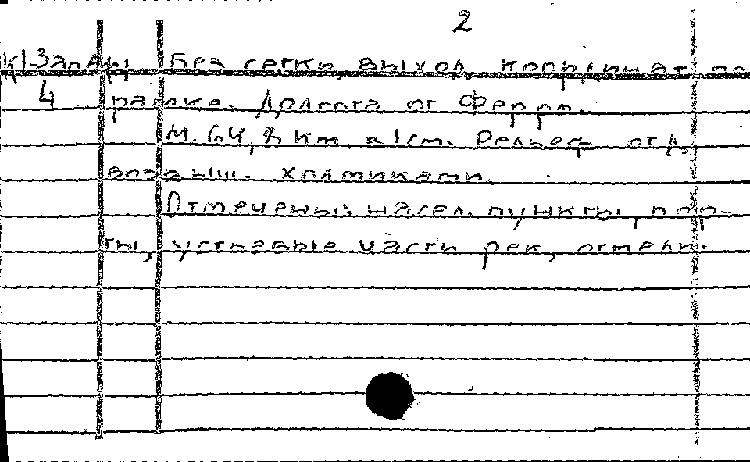 2
К13ап Без сетки, выход. координат по
4 рамке. Долгота от Ферро.
М. 64,8 км в 1см. Рельеф отд.
возвыш. холмиками.
Отмечены: насел. пункты, пор-
ты, устьевые части рек, отмели.